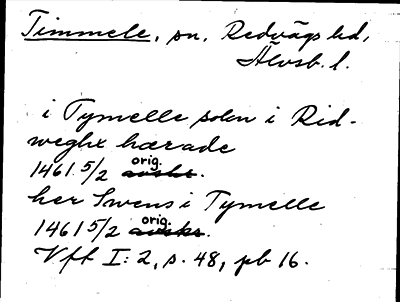 Timmele, sn, Redvägs hd,
Älvsb. l.
i Tymelle sokn i Rid-
weghx hærade
1461 5/2 orig. avskr.
her Swens i Tymelle
1461 5/2 orig. avskr.
Vff I: 2, s. 48, pb 16.